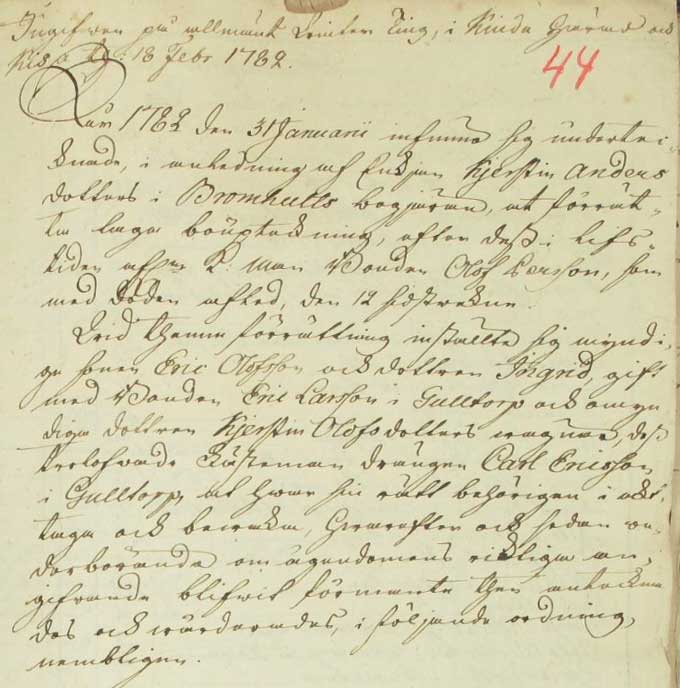 Ingifwen på allmänt Winter Ting, i Kinda Härad och
Kisa d. 18 Febr 1782.
44
Åhr 1782 den 31 Januarii infunno sig underteck-
nade, i anledning af Enkjan Kjerstin Anders
dotters i Bromhults begjäran, at förrät-
ta laga böuptekning, efter dess i lifs-
tiden afl. K: Man Bonden Olof Persson, som
med döden afled, den 12 sidstwekne.
Wid thenna förrättning instälte sig myndi-
ge sonen Eric Olofsson ock dottren Ingrid, gift
med Bonden Eric Larsson i Gulltorp ock omyn
diga dottren Kjerstin Olofsdotters wägnar, dess
trolofwade fästeman drängen Carl Ericsson
i Gulltorp, at hwar sin rätt behörigen i akt-
taga ock bewaka, Hwarefter ock sedan we-
derbörande om ägendomens riktiga an-
gifwande blifwit förmante then anteckna
des ock wärderades, i följande ordning,
nembligen.